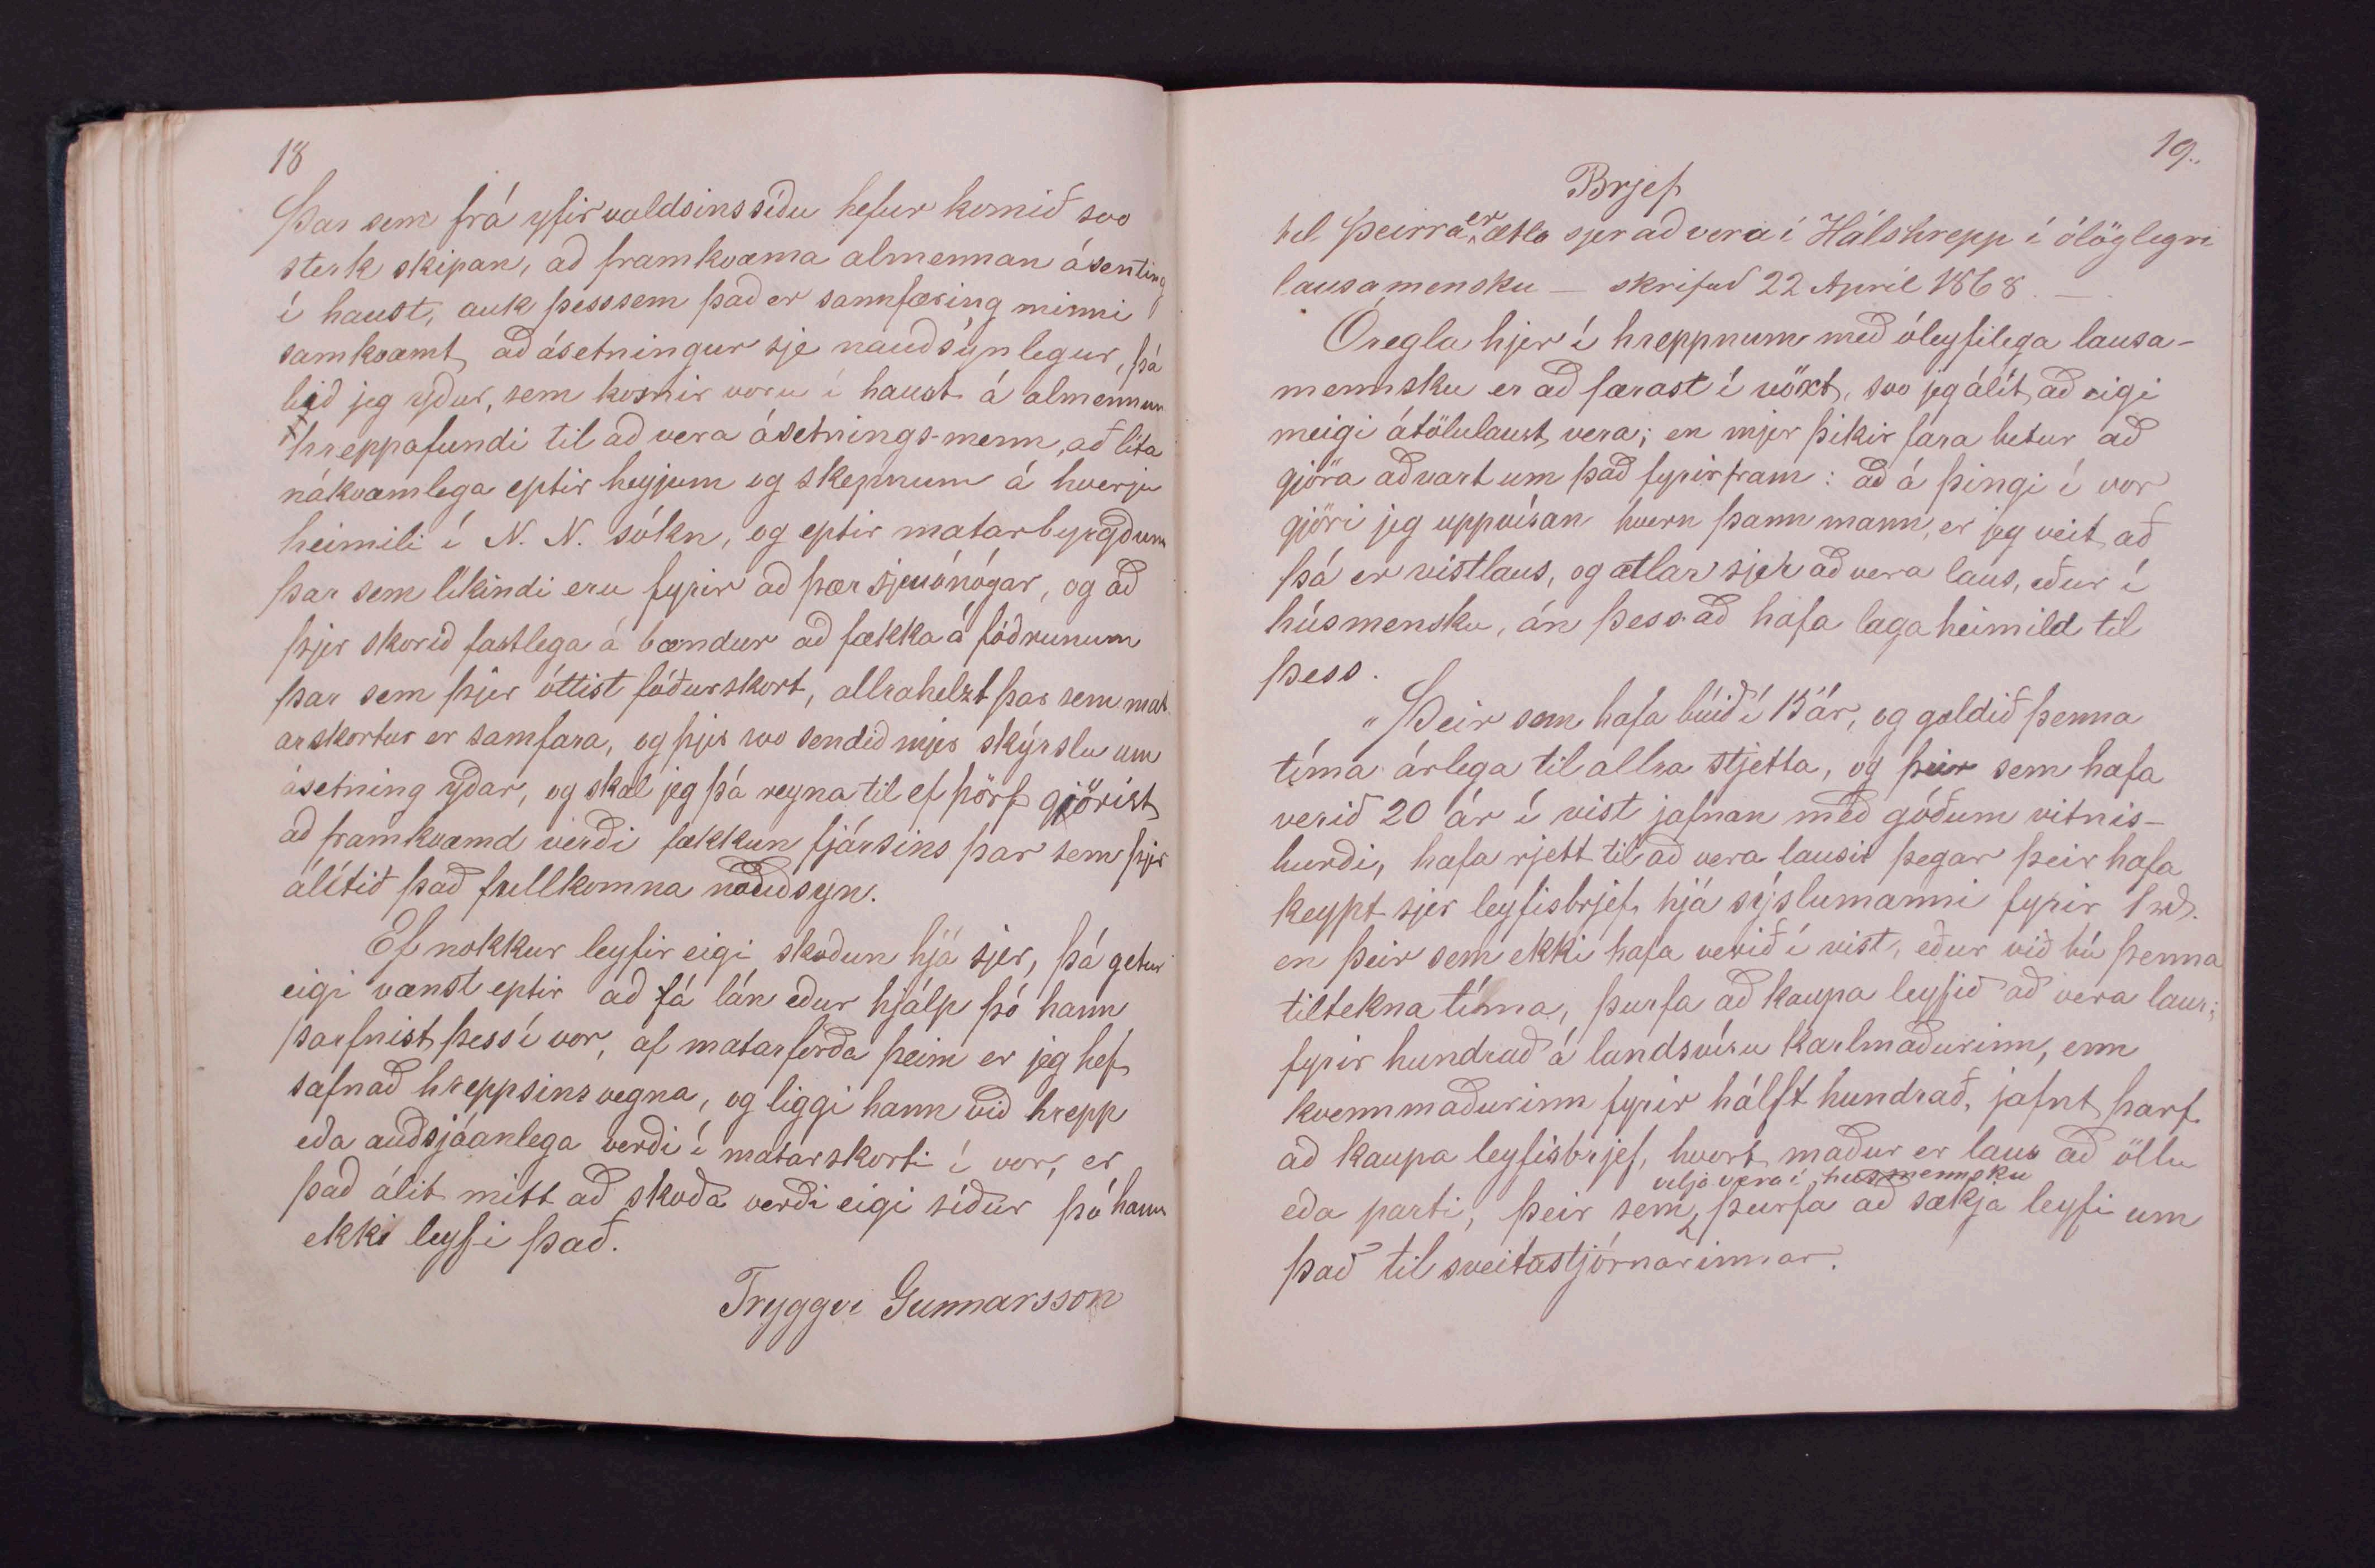 18
Þar sem frá yfirvaldsins síðu hefur komið svo
sterk skipan, að framkvæma almennan ásentíng
í haust, auk þess sem það er sannfæring minni
samkvæmt, að ásetningur sje nauðsýnlegur, þá
bið jeg yður, sem kosnir voru í haust á almennum
hreppafundi til að vera ásetnings-menn, að líta
nákvæmlega eptir heyjum og skepnum á hverju
heimili í N. N. sókn, og eptir matarbyrgðum
þar sem líkindi eru fyrir að þær sjeu ónógar, og að
þjer skorið fastlega á bændur að fækka á fóðrunum
þar sem þjer óttist fóðurskort, allrahelzt þar sem mat
arskortur er samfara, og þjer svo sendið mjer skýrslu um
ásetning yðar, og skal jeg þá reyna til ef þörf gjörist,
að framkvæmd verði fækkun fjársins þar sem þjer
álítið það fullkomna nauðsyn.
Ef nokkur leyfir eigi skoðun hjá sjer, þá getur
eigi vænst eptir að fá lán eður hjálp þó hann
þarfnist þess í vor, af matarforða þeim er jeg hef
safnað hreppsins vegna, og liggi hann við hrepp
eða auðsjáanlega verði í matarskorti í vor, er
það álit mitt að skoða verði eigi síður þó hann
ekki leyfi það.
Tryggvi Gunnarsson
19.
Brjef
til þeirra er ætla sjer að vera í Hálshrepp í ólöglegri
lausamensku – skrifað 22 Apríl 1868. –
Óregla hjer í hreppnum með óleyfilega lausa-
mennsku er að færast í vöxt, svo jeg álít, að eigi
meigi átölulaust vera; en mjer þikir fara betur að
gjöra aðvart um það fyrirfram: að á þingi í vor
gjöri jeg uppvísan hvern þann mann, er jeg veit að
þá er vistlaus, og ætlar sjer að vera laus, eður í
húsmensku, án þess að hafa lagaheimild til
þess.
„Þeir sem hafa búið í 15 ár, og goldið þenna
tíma árlega til allra stjetta, og þeir sem hafa
verið 20 ár í vist jafnan með góðum vitnis-
burði, hafa rjett til að vera lausir þegar þeir hafa
keypt sjer leyfisbrjef, hjá sýslumanni fyrir 1 rd.
en þeir sem ekki hafa verið í vist, eður við bú þenna
tiltekna tíma, þurfa að kaupa leyfið að vera laus;
fyrir hundrað á landsvísu karlmaðurinn, enn
kvennmaðurinn fyrir hálft hundrað, jafnt þarf
að kaupa leyfisbrjef, hvort maður er laus að öllu
vilja vera í húsmennsku
eða parti, þeir sem þurfa að sækja leyfi um
það til sveitastjórnarinnar.